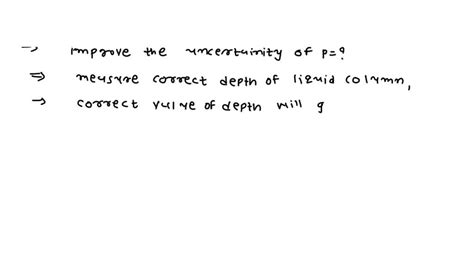 → improve the uncertuinity of P=?
⇒ meusure correct depth of liquid column,
→ correct vulve of depth will g